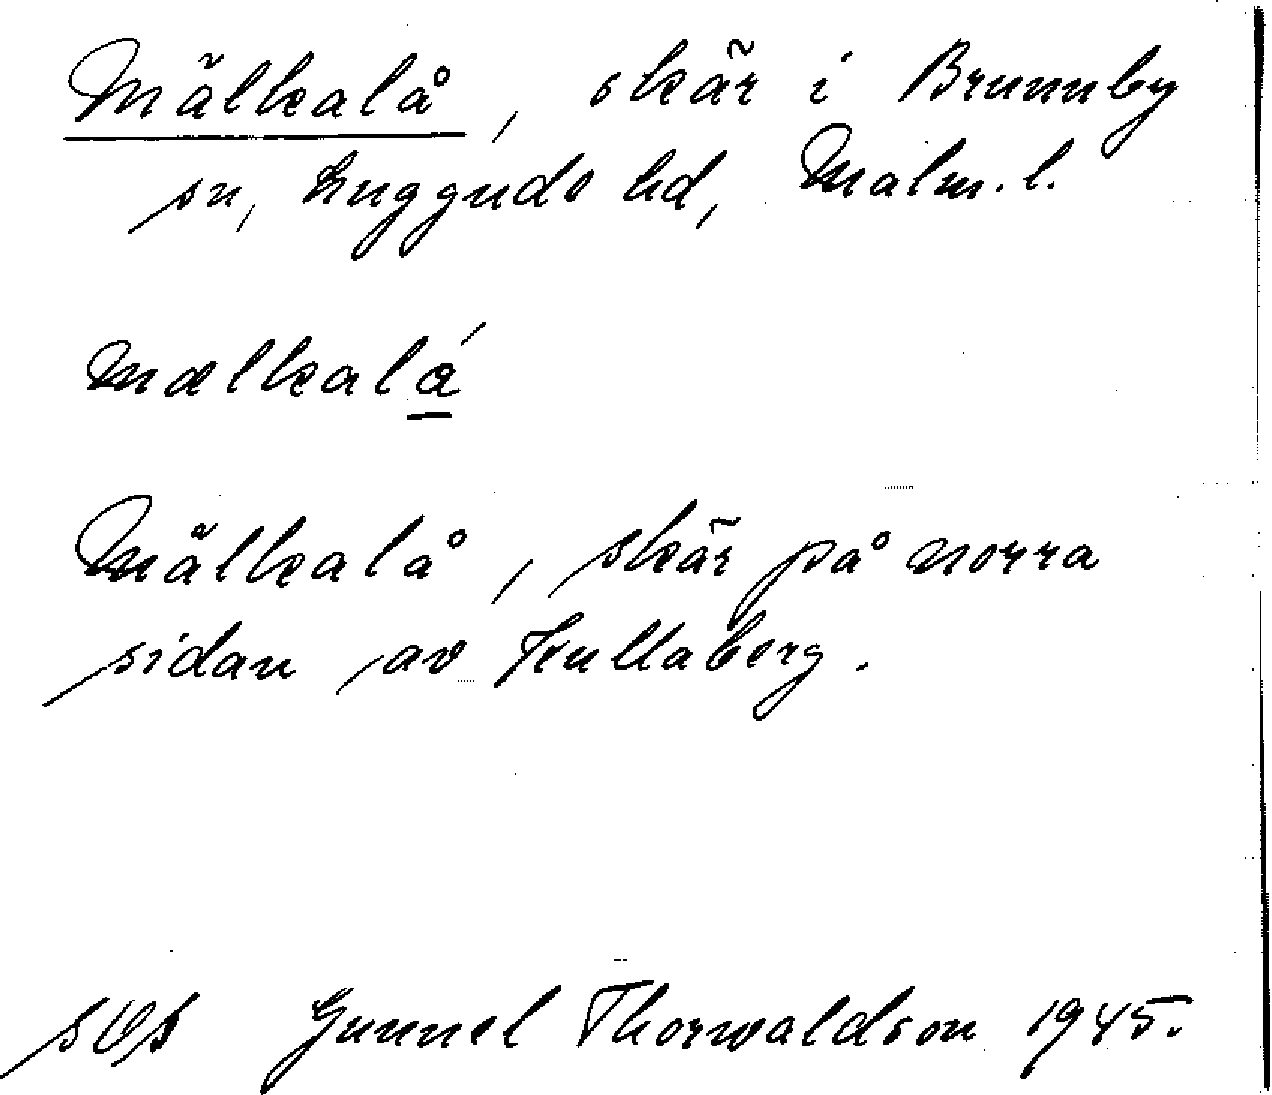 Mälkalå, skär i Brunnby
sn, Luggude hd, Malm. l.
mælkalá
Mälkalå, skär på norra
sidan av Kullaberg.
SOS Gunnel Thorwaldson 1945.